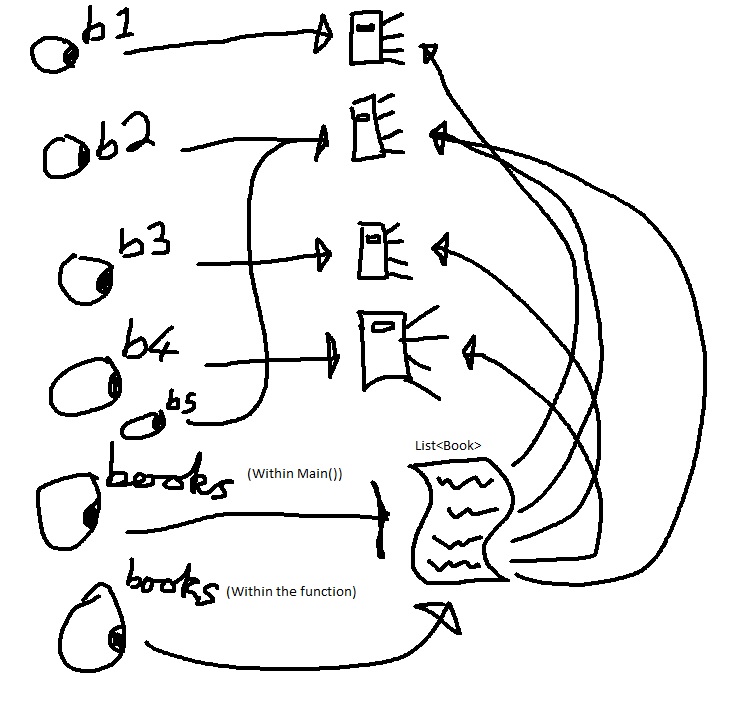 b1
b2
b3
b4
b5
List<Book>
books (Within Main())
books (Within the function)